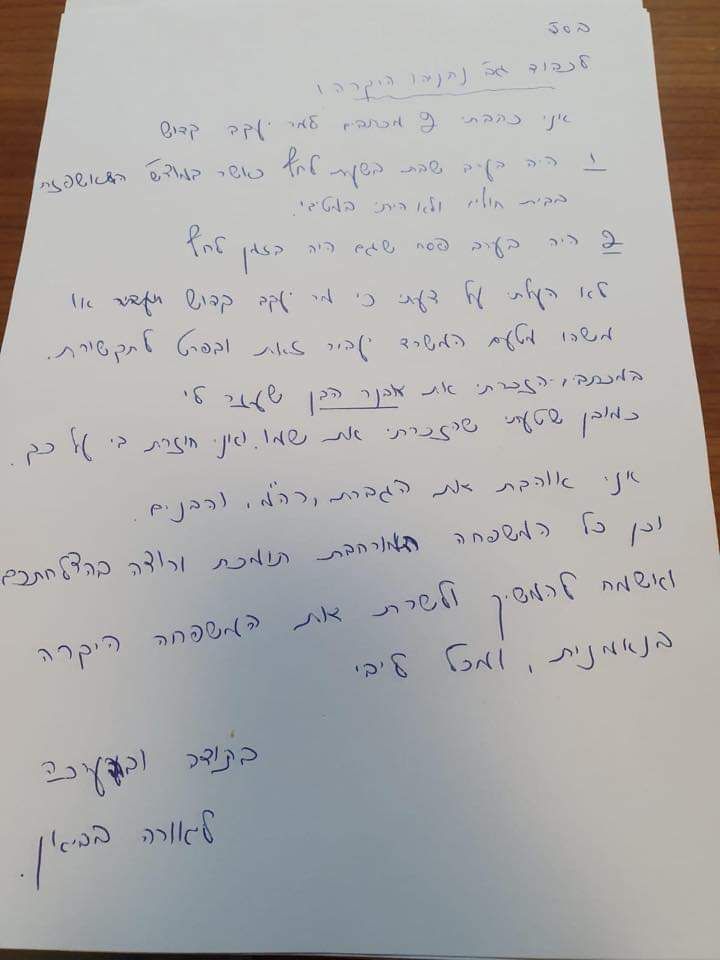 בסד
לכבוד גב' נתניהו היקרה!
אני כתבתי 2 מכתבים למר יעקב קדוש
1 היה בערב שבת בשעת לחץ כאשר במודש התאשפזה
בבית חולים ולא הייתי במטיבי.
2 היה בערב פסח שגם היה בזמן לחץ
לא העלתי על דעתי כי מר יעקב קדוש או
משהו מטעם המשרד יעביר זאת ובפרט לתקשורת.
במכתבי, הזכרתי את אבנר הבן שעזר לי
כמובן שטעתי שהזכרתי את שמו. ואני חוזרת בי על כך.
אני אוהבת את הגברת, רה"מ, והבנים.
וכן כל המשפחה המורחבת תומכת ורוצה בהצלחתכם
ואשמח להמשיך ולשרת את המשפחה היקרה
בנאמנית, ומכל ליבי
בתודה ובהערכה
לאורה בביאן.